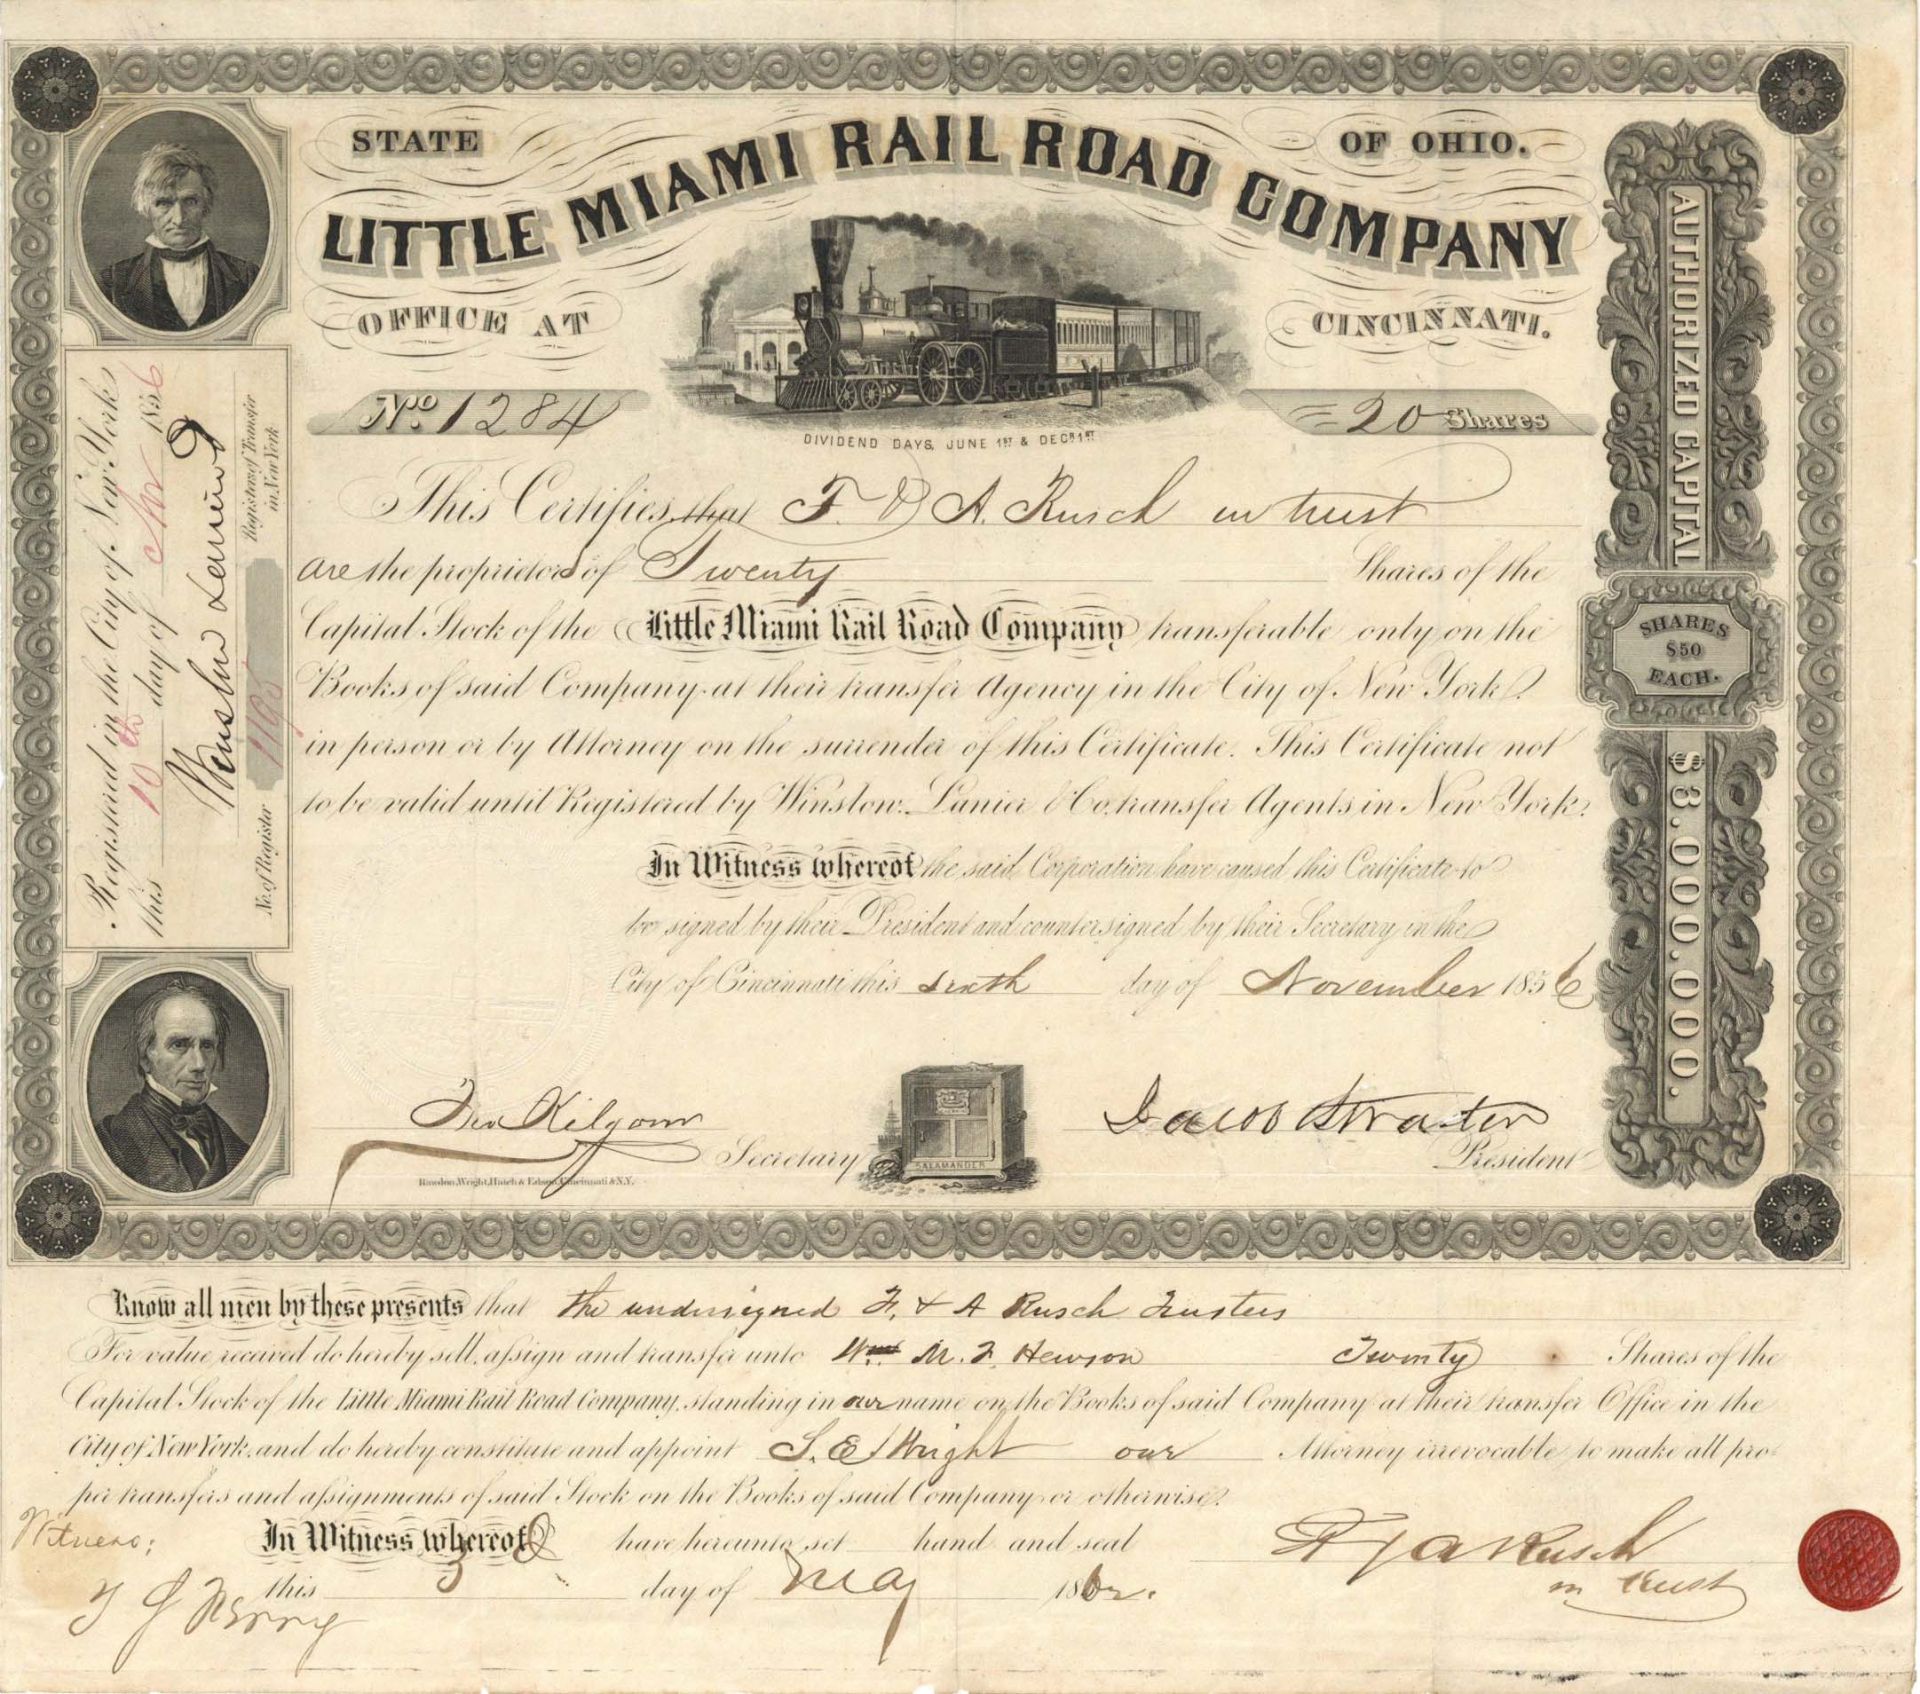 STATE OF OHIO.
LITTLE MIAMI RAIL ROAD COMPANY
OFFICE AT CINCINNATI.
No. 1284
= 20 Shares
DIVIDEND DAYS, JUNE 1ST & DECR 1ST
This Certifies that F. & A. Rusch in trust
are the proprietors of Twenty Shares of the
Capital Stock of the Little Miami Rail Road Company transferable only on the
Books of said Company at their transfer Agency in the City of New York
in person or by Attorney on the surrender of this Certificate. This Certificate not
to be valid until Registered by Winslow, Lanier & Co. transfer Agents in New York.
In Witness whereof the said Corporation have caused this Certificate to
be signed by their President and countersigned by their Secretary in the
City of Cincinnati this sixth day of November 1856
Kilgour Secretary
SALAMANDER
Jacob Strader
President
Rawdon, Wright, Hatch & Edson, Cincinnati & N.Y.
Registered in the City of New York
this 10th day of 1856
Winslow Lanier
Registers of Transfer
in New York
No. of Register 1195
AUTHORIZED CAPITAL
SHARES
$50
EACH.
$3.000.000.
Know all men by these presents that the undersigned F. & A Rusch Trustees
For value received do hereby sell, assign and transfer unto M. F. Hewson Twenty Shares of the
Capital Stock of the Little Miami Rail Road Company, standing in our name on the Books of said Company at their transfer Office in the
City of New York, and do hereby constitute and appoint S. E. Wright our Attorney irrevocable to make all pro-
per transfers and assignments of said Stock on the Books of said Company or otherwise.
Witness:
In Witness whereof have hereunto set hand and seal
this 3 day of May 1862.
F & A Rusch
in trust